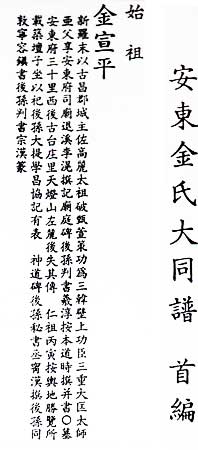 安東金氏大同譜 首編
始祖
金宣平
新羅末以古昌郡城主佐高麗太祖破甄萱策功爲三韓壁上功臣三重大匡太師
亞父享安東府司廟退溪李滉撰記廟庭碑後孫判書羲淳按本道時撰幷書○墓
安東府三十里西後古台庄里天燈山左麓後失其傳 仁祖丙寅按輿地勝覽所
載築壇子坐以祀後孫大提學昌協記有表 神道碑後孫秘書丞甯漢撰後孫同
敦寧容鎭書後孫判書宗漢篆